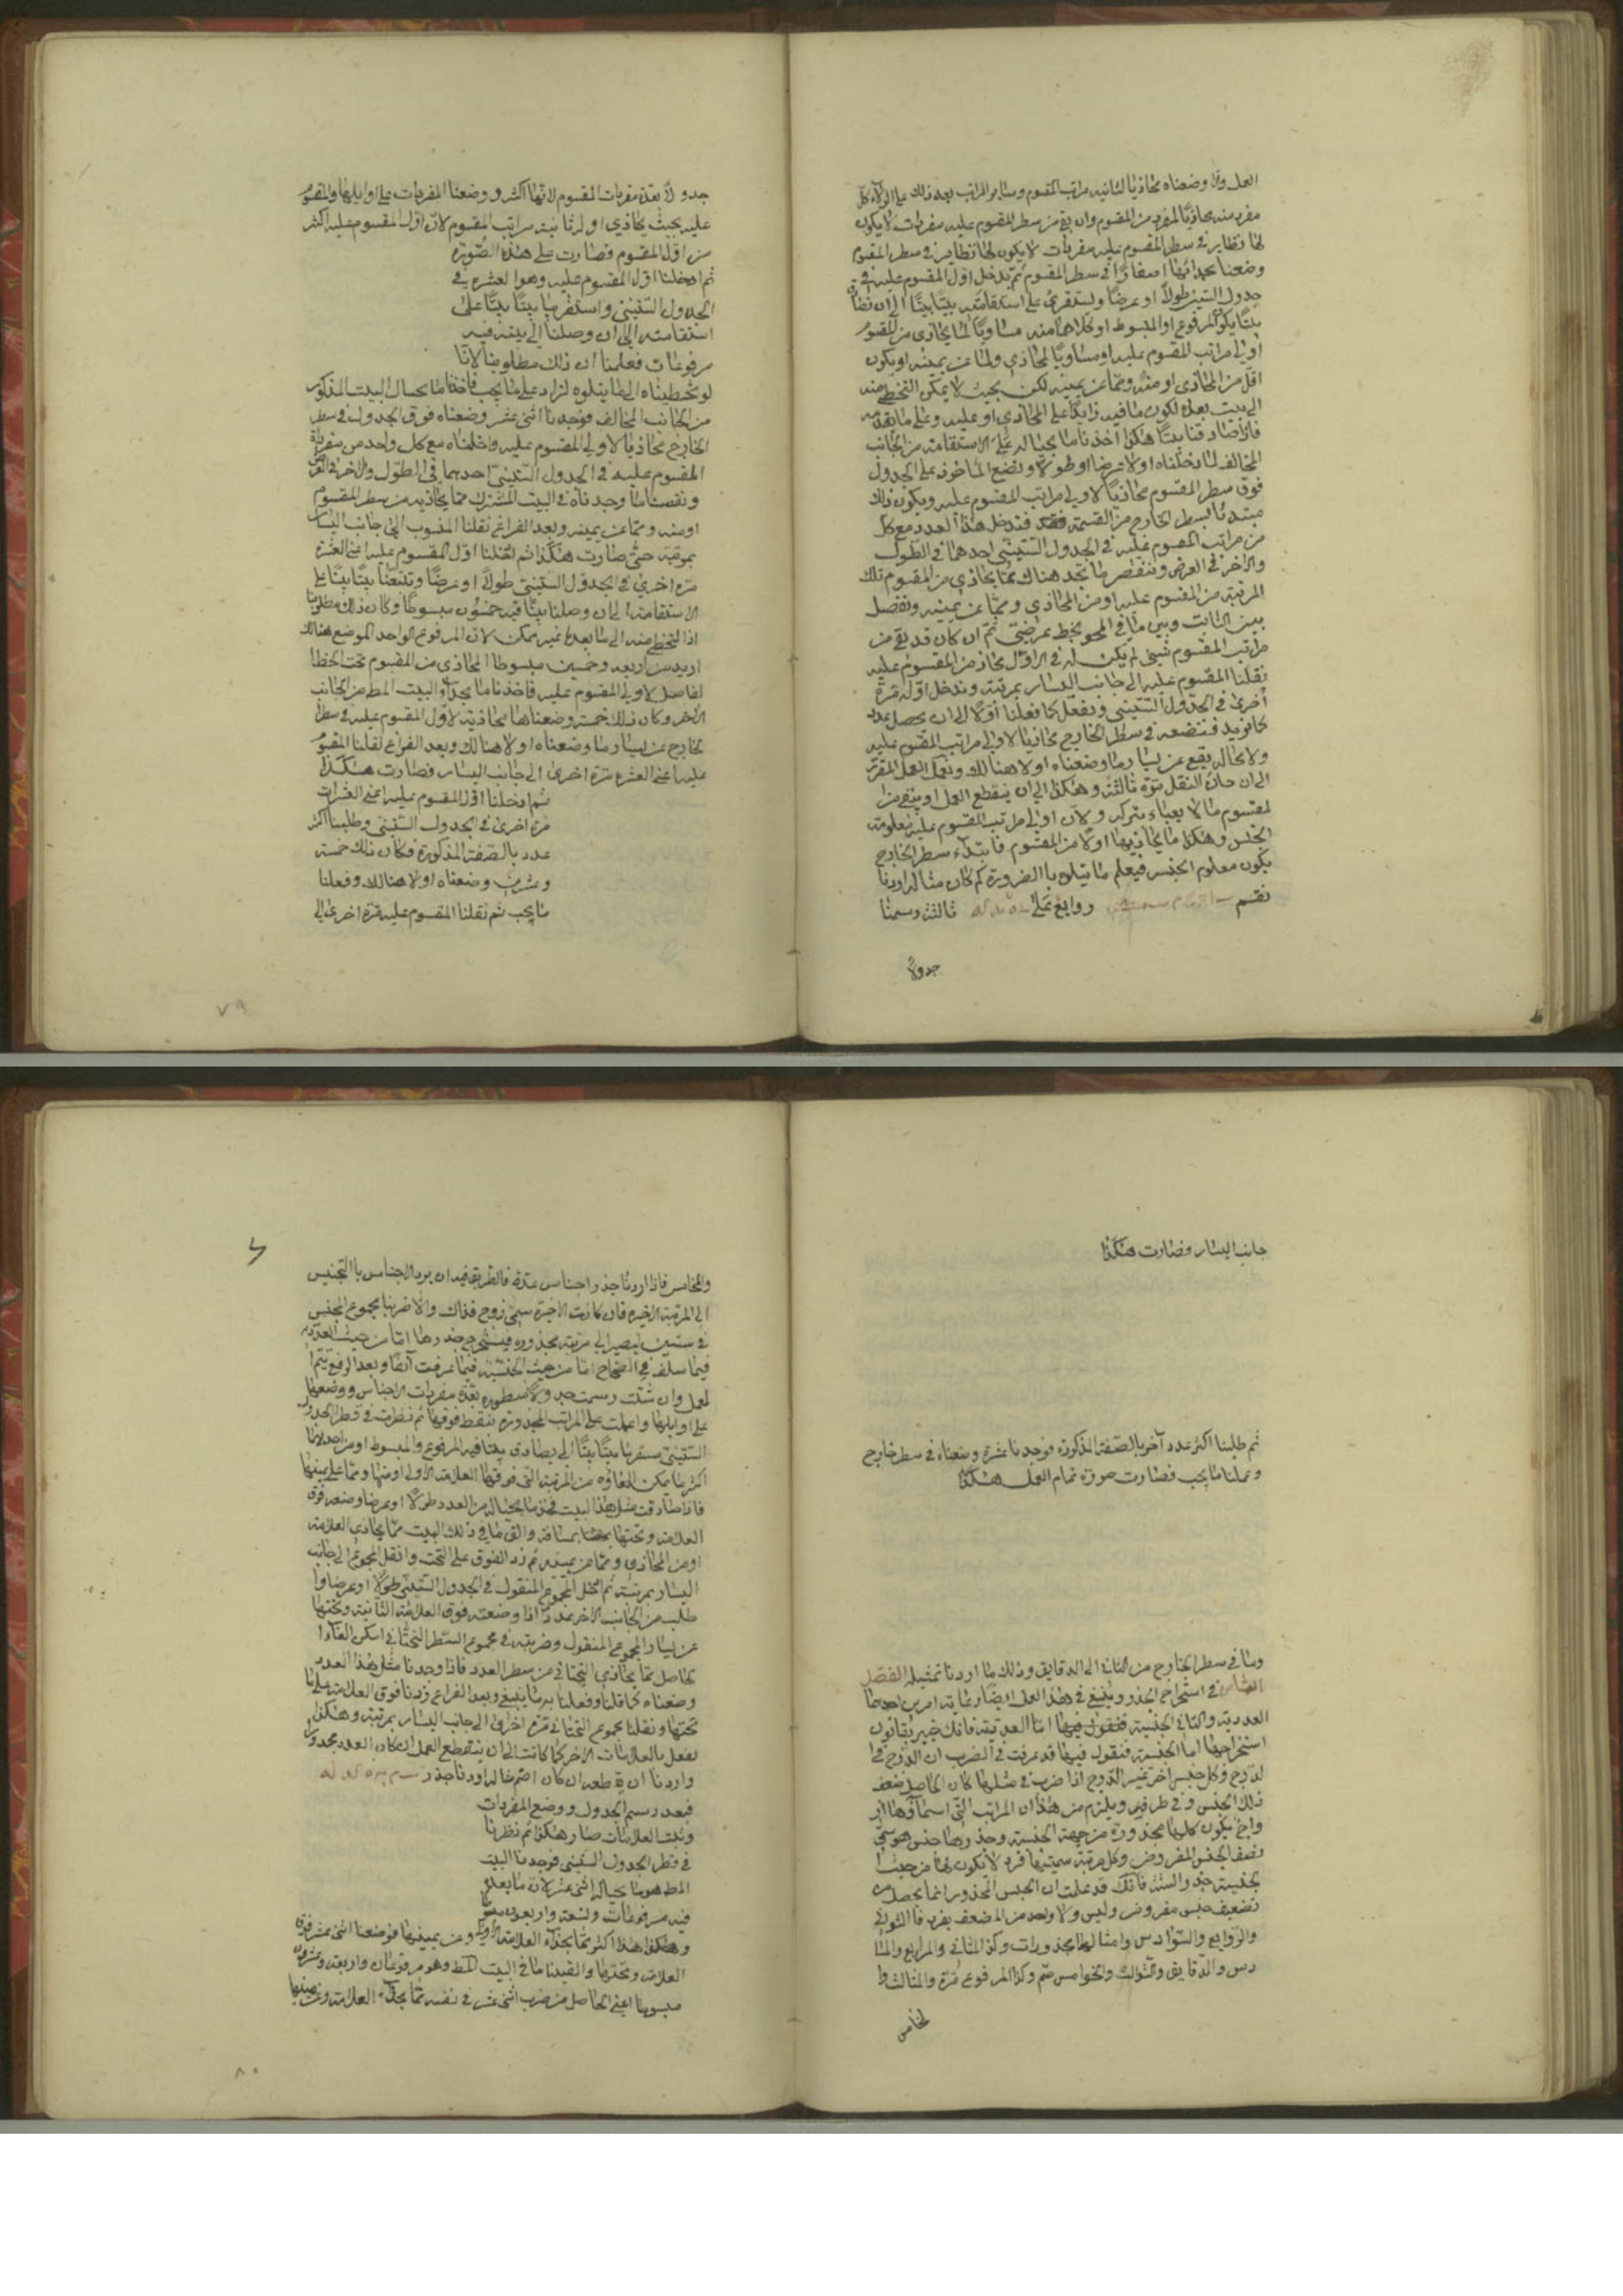 العمل وان وضعناه محاذيا لثانية مراتب المقسوم وساير المراتب بعد ذلك على الولاء كل
مفرد منه محاذيا لمفرد من المقسوم وان بقى من سطر المقسوم عليه مفردات لا يكون
لها نظاير في سطر المقسوم عليه مفردات لا يكون لها نظاير في سطر المقسوم
وضعنا بحذائها اصفارا في سطر المقسوم ثم ندخل اول المقسوم عليه في
جدول الستين طولا او عرضا ونستقرئ على استقامته بيتا بيتا الى ان
بيتا يكون المرفوع او المبسوط او كلاهما منه مساويا لما يحاذى من المقسوم
اولى مراتب المقسوم عليه او مساويا لمحاذي ولما عن يمينه او يكون
اقل من المحاذى او منه ومما عن يمينه لكن بحيث لا يمكن التخطى منه
الى بيت بعده لكون ما فيه زايدا على المحاذي او عليه وعلى ما
فاذا صادفنا بيتا هكذا اخذنا ما بحياله على الاستقامة من الجانب
المخالف لما دخلناه اولا عرضا او طولا ونضع الماخوذ على الجدول
فوق سطر المقسوم محاذيا لاولى مراتب المقسوم عليه ويكون ذلك
مبتدئا لسطر الخارج من القسمة فندخل هذا العدد مع كل
من مراتب المقسوم عليه في الجدول الستيني احدهما في الطول
والاخر في العرض وننقص ما نجد هناك مما يحاذى من المقسوم تلك
المرتبة من المقسوم عليه او من المحاذي ومما عن يمينه ونفصل
بين الثابت وبين ما في المحو بخط عرضي ثم ان كان قد بقى من
مراتب المقسوم شيئ لم يكن له في الاول محاذ من المقسوم عليه
نقلنا المقسوم عليه الى جانب اليسار بمرتبة وندخل اوله مرة
اخرى في الجدول الستيني ونفعل كما فعلنا اولا الى ان يحصل عدد
كما نريد فنضعه في سطر الخارج محاذيا لاولى مراتب المقسوم عليه
ولا محاله يقع عن يسار ما وضعناه اولا هنالك ونعمل العمل المقرر
الى ان حان النقل مرة ثالثة وهكذا الى ان ينقطع العمل او يبقى من
لمقسوم ما لا يعباء بتركه ولان اولى مراتب المقسوم عليه معلومة
الجنس وهكذا ما يحاذيها اولا من المقسوم فابتداء سطر الخارج
يكون معلوم الجنس فيعلم ما يتلوه بالضرورة كم كان مثاله اردنا
نقسم روابع على ثالثة رسمنا
جدولا
جدولا بعدة مفردات المقسوم لانها اكثر ووضعنا المفردات على اوايلها والمقسوم
عليه بحيث يحاذي اوله ثانية مراتب المقسوم لان اول المقسوم عليه اكثر
من اول المقسوم فصارت على هذه الصورة
ثم ادخلنا اول المقسوم عليه وهو العشره في
الجدول الستيني واستقرينا بيتا بيتا على
استقامته الى ان وصلنا الى بيت فيه
مرفوعات فعلمنا ان ذلك مطلوبنا لانا
لو تخطيناه الى ما يتلوه لزاد على ما يجب فاخذنا ما بحيال البيت المذكور
من الجانب المخالف فوجدنا اثنى عشر وضعناه فوق الجدول في سطر
الخارج محاذيا لاولى المقسوم عليه وادخلناه مع كل واحد من مفردات
المقسوم عليه في الجدول الستيني احدهما في الطول والاخر في العرض
ونقصنا ما وجدناه في البيت المشترك مما يحاذيه من سطر المقسوم
او منه ومما عن يمينه وبعد الفراغ نقلنا المنسوب الى جانب اليسار
بمرتبة حتى صارت هكذا ثم ادخلنا اول المقسوم عليه اعنى العشرة
مرة اخرى في الجدول الستيني طولا او عرضا وتتبعنا بيتا بيتا على
الاستقامة الى ان وصلنا بيتا فيه خمسون مبسوطا وكان ذلك مطلوبنا
اذ التخطى منه الى ما بعده غير ممكن لان المرفوع الواحد الموضع هنالك
ازيد من اربعه وخمسين مبسوطا المحاذي من المقسوم تحت الخط
لفاصل لاولى المقسوم عليه فاخذنا ما بحذاء البيت المط من الجانب
الاخر وكان ذلك خمسة وضعناها محاذية لاول المقسوم عليه في سطر
لخارج عن يسار ما وضعناه اولا هنالك وبعد الفراغ نقلنا المقسوم
عليه اعنى العشره مرة اخرى الى جانب اليسار فصارت هكذا
ثم ادخلنا اول المقسوم عليه اعنى العشرات
مرة اخرى في الجدول الستيني وطلبنا اكثر
عدد بالصفة المذكورة فكان ذلك خمسة
وعشرين وضعناه اولا هنالك وفعلنا
ما يجب ثم نقلنا المقسوم عليه مرة اخرى الى
٧٩
جانب اليسار فصارت هكذا
ثم طلبنا اكثر عدد آخر بالصفة المذكورة فوجدنا عشرة وضعناه في سطر خارج
وعملنا ما يجب فصارت صورة تمام العمل هكذا
وما في سطر الخارج من الثانى الى الدقايق وذلك ما اردنا تمثيله الفصل
السادس في استخراج الجذر وينبغي في هذا العمل ايضا رعاية امرين احدهما
العددية والثانى الجنسية فنقول فيها اما العددية فانك خبير بقانون
استخراجها اما الجنسية فنقول فيها قد عرفت في الضرب ان الزوج في
لزوج وكل جنس اخر غير الزوج اذا ضرب في مثلها كان الحاصل ضعف
ذلك الجنس وفي طرفيه ويلزم من هذا ان المراتب التى اسماؤها
واج يكون كلها مجذورة من جهة الجنسية وجذرها جنس هو سمى
نصف الجنس المفروض وكل مرتبة سميتها فرد لا يكون لها من حيث
لجنسية جذر والستة فانك قد علمت ان الجنس المجذور انما يحصل من
تضعيف جنس مفروض وليس ولا واحد من المضعف بفرد فالثوانى
والروابع والسوادس وامثالها مجذورات وكذا المثانى والمرابع والمسا
دس والدقايق والثوالث والخوامس صم وكذا المرفوع مرة والمثالث وا
لخامس
والمخامس فاذا اردنا جذر اجناس عدة فالطريق فيه ان يرد الاجناس بالتجنيس
الى المرتبة الاخيره فان كانت الاخيرة سمى زوج فذاك والا ضربنا مجموع الجنس
في ستين ليصير الى مرتبة مجذوره فيستخرج جذرها اما من حيث العددية
فيما سلف في الصحاح اما من حيث الجنسية فبما عرفت آنفا وبعد الرفع يتم ا
لعمل وان شئت رسمت جدولا سطوره بعدة مفردات الاجناس ووضعها
على اوايلها واعلمت على المراتب المجذورة بنقط فوقها ثم نظرت في قطر الجدول
الستيني مستقريا بيتا بيتا الى ان يصادف بيتا فيه المرفوع والمبسوط او من احدهما
اكثر ما يمكن القاؤه من المرتبة التى فوقها العلامة الاولى او منها ومما على يمينها
فاذا صادفت مثل هذا البيت فخذ ما بحياله من العدد طولا او عرضا وضعه فوق
العلامة وتحتها بمسافة والق ما في ذلك البيت مما يحاذى العلامة
او من المحاذي ومما عن يمينه ثم زد الفوق على التحت وانقل المجموع الى جانب
اليسار بمرتبة ثم ادخل المجموع المنقول في الجدول الستيني طولا او عرضا وا
طلب من الجانب الاخر عددا اذا وضعته فوق العلامة الثانية وتحتها
عن يسار المجموع المنقول وضربته في مجموع السطر التحتانى امكن القاء ا
لحاصل مما يحاذى التحتاني من سطر العدد فاذا وجدنا مثل هذا العدد
وضعناه كما قلنا وفعلنا به ما ينبغي وبعد الفراغ زدنا فوق العلامة على ما
تحتها ونقلنا مجموع التحتانى مرة اخرى الى جانب اليسار بمرتبة وهكذا
نفعل بالعلامات الاخر كما كانت الى ان ينقطع العمل ان كان العدد مجذورا
واردنا ان قطعه ان كان اصم مثاله اردنا جذر
فبعد رسم الجدول ووضع المفردات
وثبت العلامات صار هكذا ثم نظرنا
في قطر الجدول الستيني فوجدنا البيت
المط هو ما بحياله اثنى عشر لان ما بعده
فيه مرفوعات وتسعة واربعون
وهذا اكثر مما بحذاء العلامة الاولى وعن يمينها فوضعنا اثنى عشر فوق
العلامة وتحتها والقينا ما في البيت المط وهو مرفوعان واربعة وعشرون
مبسوطا اعنى الحاصل من ضرب اثنى عشر في نفسه مما بحذاء العلامة وعن يمينها
٨٠